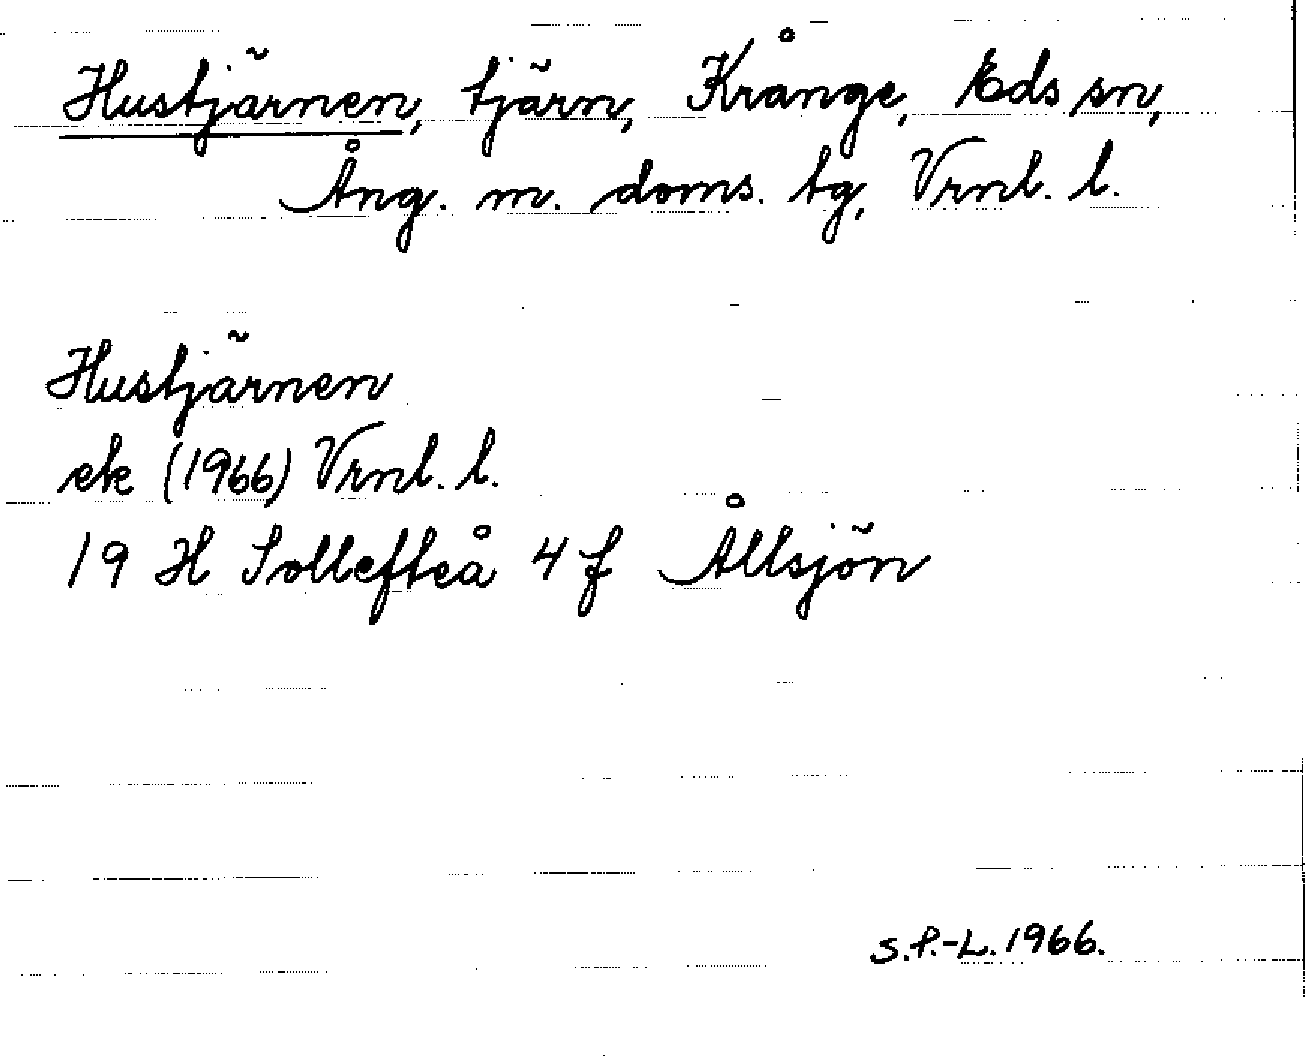 Hustjärnen, tjärn, Krånge, Eds sn,
Ång. m. doms. tg, Vrnl. l.
Hustjärnen
ek (1966) Vrnl. l.
19 H Sollefteå 4 f Ållsjön
S.P.-L. 1966.